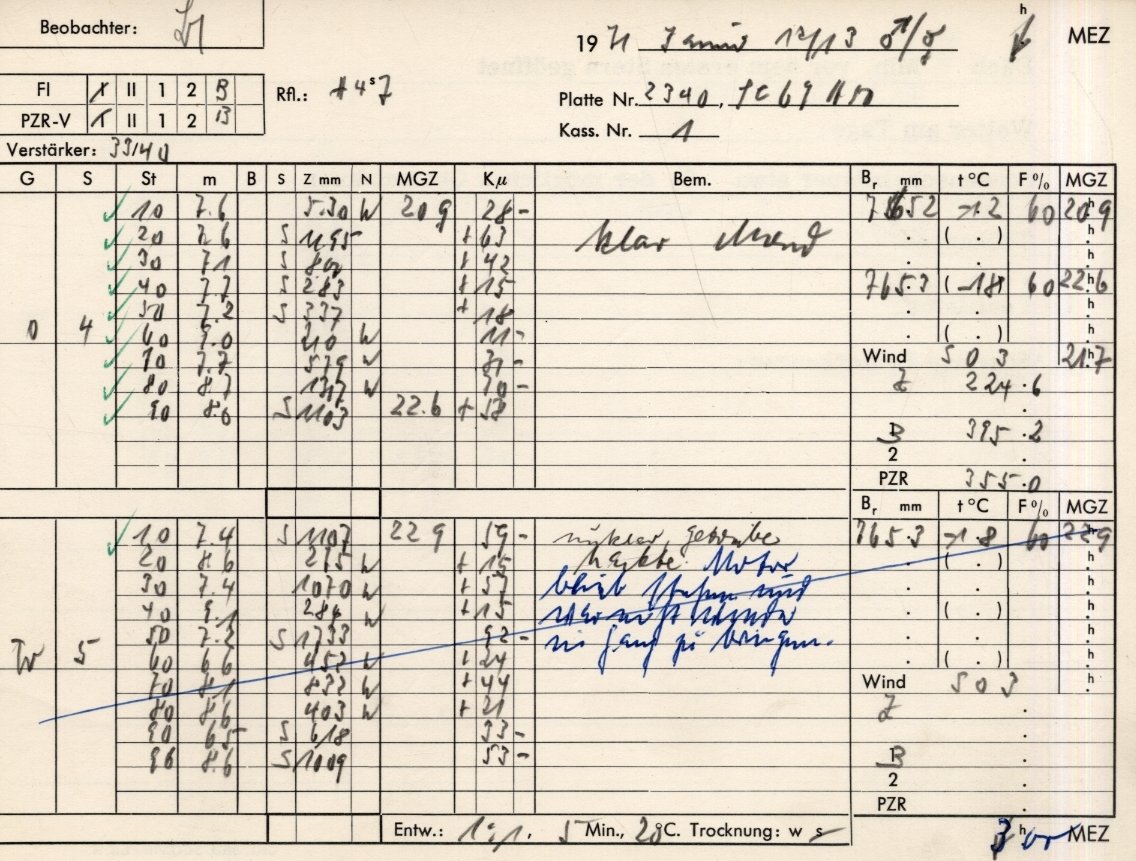 Beobachter:
1971 Januar 12/13 ♂/☿ h MEZ
FI I II 1 2 B
PZR-V I II 1 2 B
Rfl.: +4ˢ7
Platte Nr. 2340,
Kass. Nr. 1
Verstärker: 33/40
G S St m B S Z mm N MGZ Kμ Bem. Br mm t °C F % MGZ
10 7.6 530 W 20 9 28 - 765.2 -1.2 60 20.9
20 7.6 S 1195 + 63 klar Mond ( . ) h
30 7.1 S 800 + 42 h
40 7.7 S 283 + 15 765.3 (-1.8) 60 22.6
50 7.2 S 337 + 18 h
0 4 60 9.0 210 W 11 - ( . ) h
70 7.7 579 W 31 - Wind S 0 3 21.7
80 8.7 1317 W 70 - Z 224.6
90 8.6 S 1103 22.6 + 58
B 395.2
2 .
PZR 355.0
Br mm t °C F % MGZ
10 7.4 S 1107 22 9 59 - 765.3 -1.8 60 22.9
20 8.6 275 W + 15 Motor ( . ) h
30 7.4 1070 W + 57 blieb stehen und h
40 9.1 284 W + 15 war nicht wieder ( . ) h
50 7.2 S 1733 92 - in Gang zu bringen. h
Tr 5 60 6.6 453 W + 24 ( . ) h
70 8.1 833 W + 44 Wind S 0 3 h
80 8.6 403 W + 21 Z .
90 6.5 S 618 33 -
96 8.6 S 1009 53 - B .
2 .
PZR .
Entw.: 1:1, 5 Min., 20 °C. Trocknung: w s 3 h MEZ